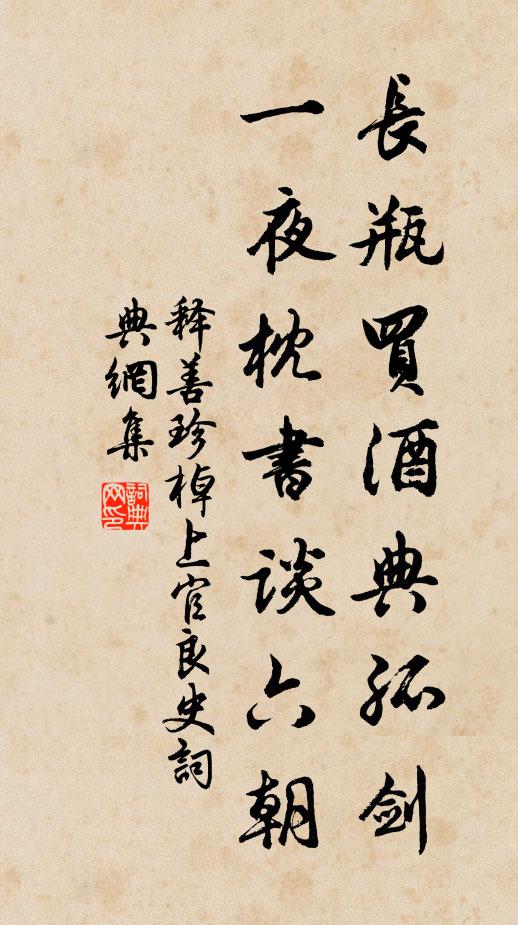 長瓶買酒典孤剑
一夜枕書談六朝
释善珍悼上官良史詞
典網集
詞典網印